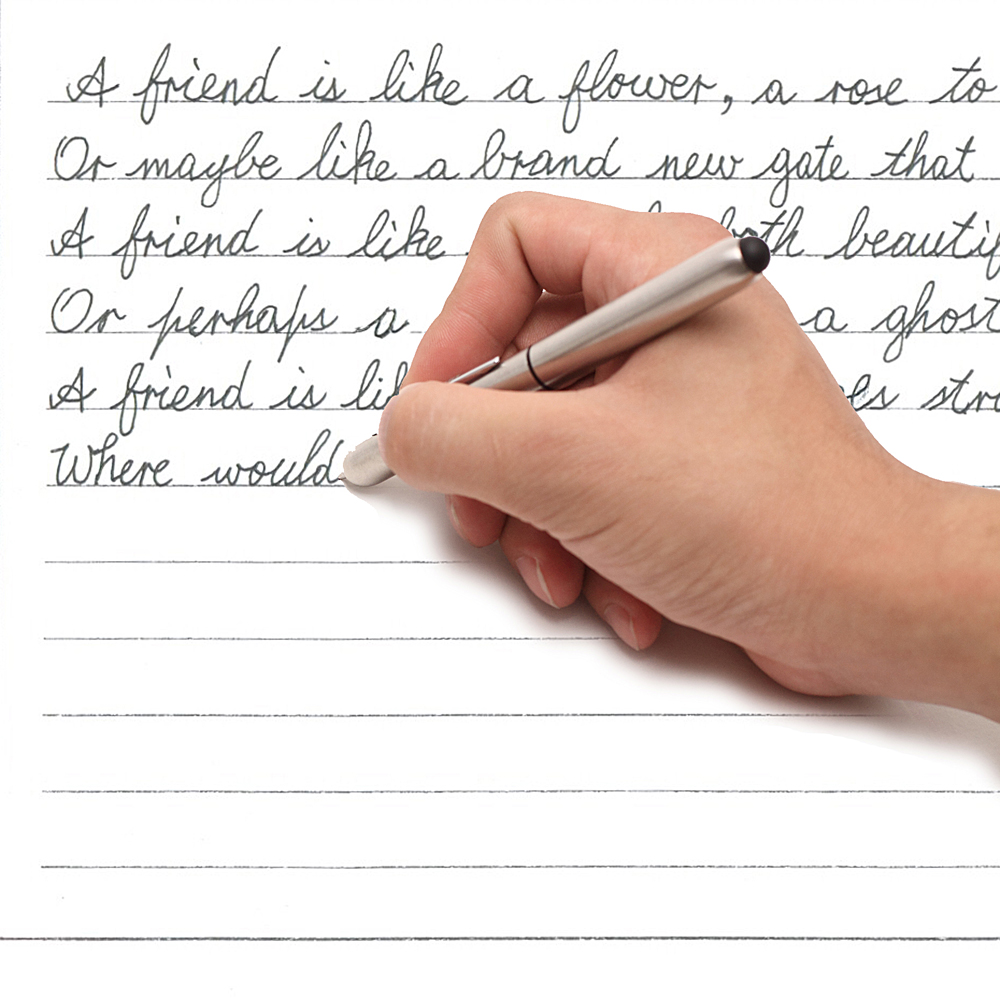 A friend is like a flower, a rose to
Or maybe like a brand new gate that
A friend is like both beautif
Or perhaps a a ghost
A friend is lik es stra
Where would